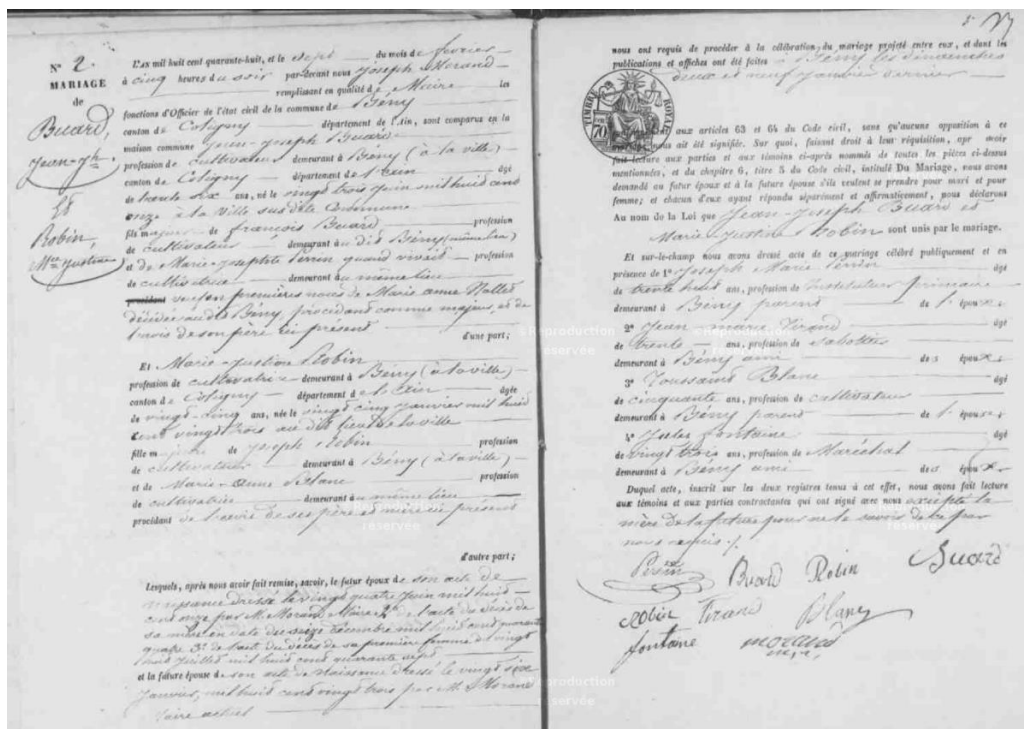 N° 2.
MARIAGE
de
Buard,
Jean-Jh
Et
Robin,
Mie Justine
L'an mil huit cent quarante-huit, et le sept du mois de fevrier
à cinq heures du soir par-devant nous Joseph Morand
remplissant en qualité de Maire les
fonctions d'Officier de l'état civil de la commune de Bény
canton de Coligny département de l'Ain, sont comparus en la
maison commune Jean-Joseph Buard
profession de cultivateur demeurant à Bény (à la ville)
canton de Coligny département de l'ain âgé
de trente six ans, né le vingt trois juin mil huid cent
onze à la ville susdite Commune
fils majeur de françois Buard profession
de cultivateur demeurant au dit Bény (même lieu)
et de Marie-Josephte Perrin quand vivait profession
de cultivatrice demeurant au même lieu
veuf en premières noces de Marie anne
décédée au dit Bény, procédant comme majeur, et de
l'avis de son père ici présent
d'une part;
Et Marie-Justine Robin
profession de cultivatrice demeurant à Bény (à la ville)
canton de Coligny département de l'Ain âgée
de vingt-cinq ans, née le vingt cinq janvier mil huid
cent vingt trois au dit lieu de la ville
fille majeure de Joseph Robin profession
de cultivateur demeurant à Bény (à la ville)
et de Marie-Anne Blanc profession
de cultivatrice demeurant au même lieu
procédant de l'avis de ses père et mère ici présents
d'autre part;
Lesquels, après nous avoir fait remise, savoir, le futur époux de son acte de
naissance dressé le vingt quatre juin mil huid
cent onze par M. Morand Maire 2° de l'acte de décès de
sa mère en date du seize décembre mil huid cent quarante
quatre 3° de l'acte du décès de sa première femme du vingt
huid juillet mil huid cent quarante sept
et la future épouse de son acte de naissance dressé le vingt six
janvier, mil huid cent vingt trois par M. Morand
Maire actuel
nous ont requis de procéder à la célébration du mariage projeté entre eux, et dont les
publications et affiches ont été faites à Bény les dimanches
deux et neuf janvier dernier
TIMBRE ROYAL
70
aux articles 63 et 64 du Code civil, sans qu'aucune opposition à ce
mariage nous ait été signifiée. Sur quoi, faisant droit à leur réquisition, après avoir
fait lecture aux parties et aux témoins ci-après nommés de toutes les pièces ci-dessus
mentionnées, et du chapitre 6, titre 5 du Code civil, intitulé Du Mariage, nous avons
demandé au futur époux et à la future épouse s'ils veulent se prendre pour mari et pour
femme; et chacun d'eux ayant répondu séparément et affirmativement, nous déclarons
Au nom de la Loi que Jean-Joseph Buard et
Marie Justine Robin sont unis par le mariage.
Et sur-le-champ nous avons dressé acte de ce mariage célébré publiquement et en
présence de 1° Joseph Marie Perrin âgé
de trente huit ans, profession de instituteur primaire
demeurant à Bény parent de l'époux
2° Jean-marie Tirand âgé
de trente ans, profession de sabottier
demeurant à Bény ami des époux
3° Toussaint Blanc âgé
de cinquante ans, profession de cultivateur
demeurant à Bény parent de l'épouse
4° Jules fontaine âgé
de vingt trois ans, profession de Maréchal
demeurant à Bény ami des époux
Duquel acte, inscrit sur les deux registres tenus à cet effet, nous avons fait lecture
aux témoins et aux parties contractantes qui ont signé avec nous excepté la
mère de la future pour ne le savoir de ce par
nous requis.
Perrin Buard Robin Buard
Robin Tirand Blanc
fontaine morand
©Reproduction
réservée